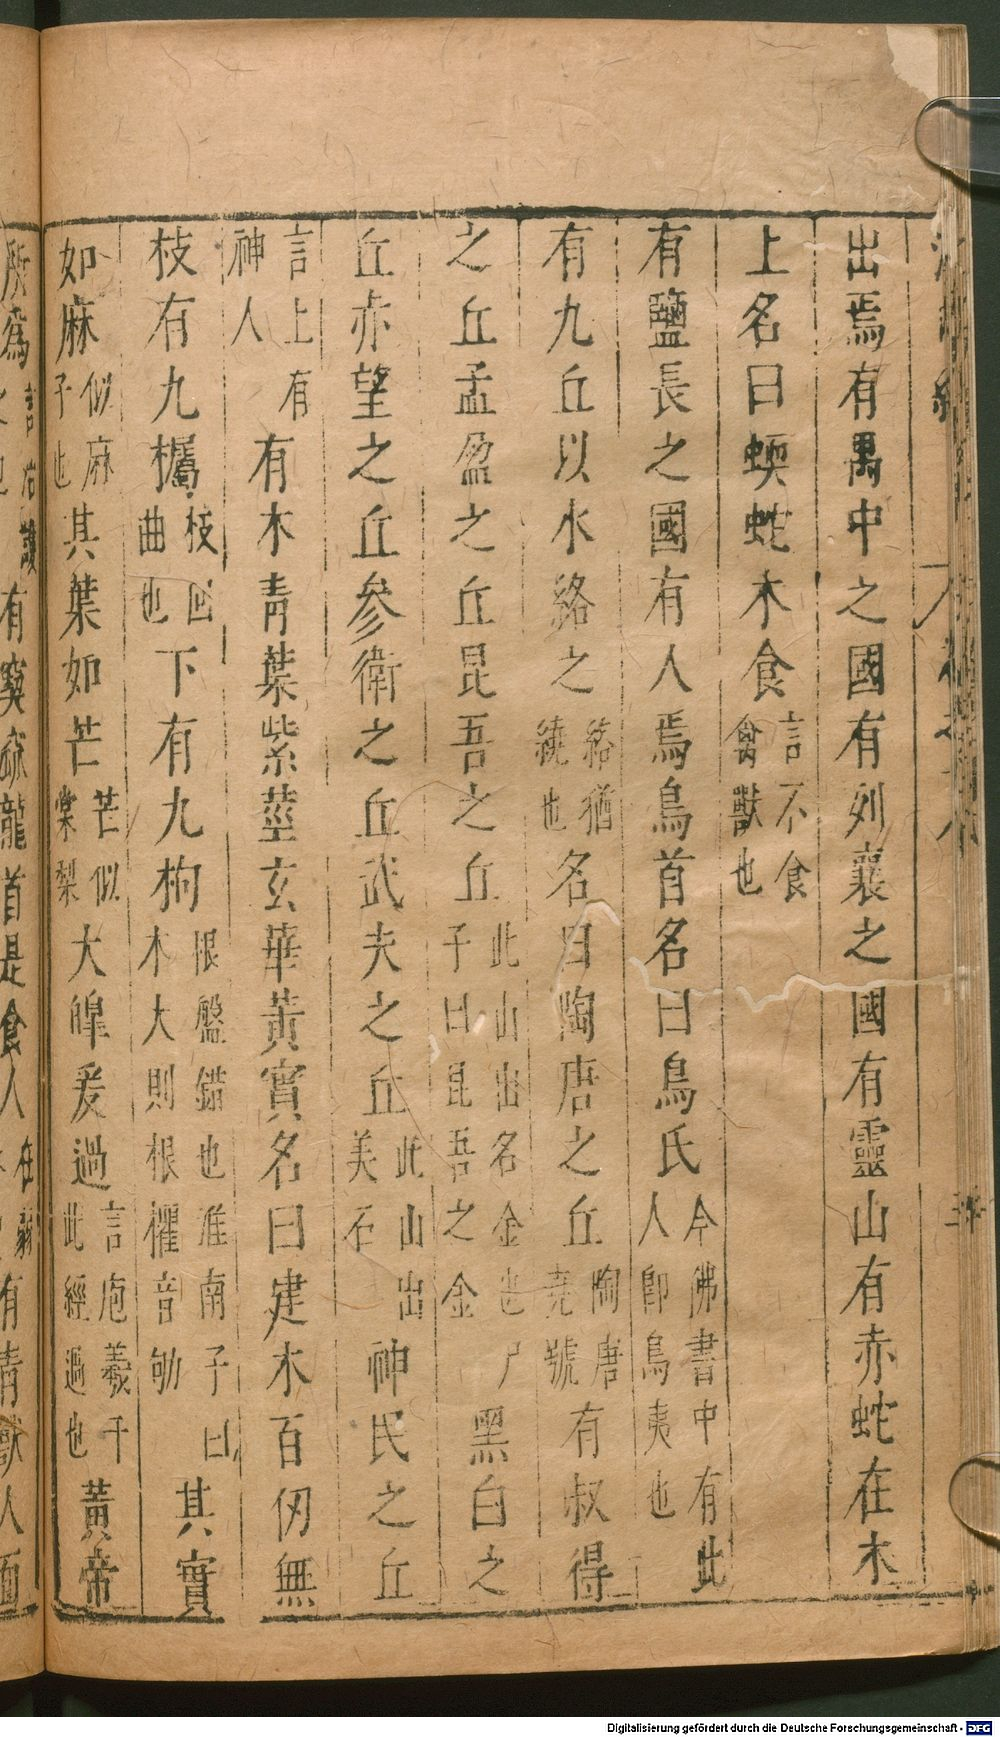 出焉有禺中之國有列襄之國有靈山有赤蛇在木
上名曰蝡蛇木食言不食禽獸也
有鹽長之國有人焉鳥首名曰鳥氏今佛書中有此人即鳥夷也
有九丘以水絡之絡猶繞也名曰陶唐之丘陶唐堯號有叔得
之丘孟盈之丘昆吾之丘此山出名金也尸子曰昆吾之金黑白之
丘赤望之丘參衛之丘武夫之丘此山出美石神民之丘
言上有神人有木青葉紫莖玄華黃實名曰建木百仞無
枝有九欘枝回曲也下有九枸根盤錯也淮南子曰木大則根欋音劬其實
如麻似麻子也其葉如芒芒似棠梨大皥爰過言庖羲于此經過也黃帝
所為言治護之也有窫窳龍首是食人有青獸人面
Digitalisierung gefördert durch die Deutsche Forschungsgemeinschaft - DFG